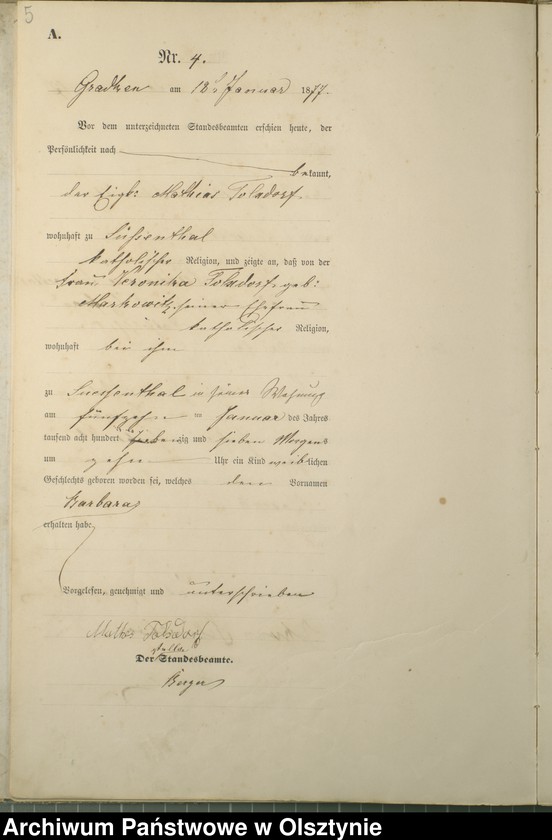 5
A.
Nr. 4.
am 18 Januar 1877.
Vor dem unterzeichneten Standesbeamten erschien heute, der
Persönlichkeit nach
bekannt,
der Eigk: Mathias Tolsdorf
wohnhaft zu Süssenthal
katholischer Religion, und zeigte an, daß von der
Frau Veronika Tolsdorf, geb:
Markowitz, seiner Ehefrau
katholischer Religion,
wohnhaft bei ihm
zu Suessenthal in seiner Wohnung
am fünfzehn Januar des Jahres
tausend acht hundert siebenzig und sieben Morgens
um zehn Uhr ein Kind weiblichen
Geschlechts geboren worden sei, welches den Vornamen
Barbara
erhalten habe,
Vorgelesen, genehmigt und unterschrieben
Tolsdorf
Der Standesbeamte.
Berger
Archiwum Państwowe w Olsztynie